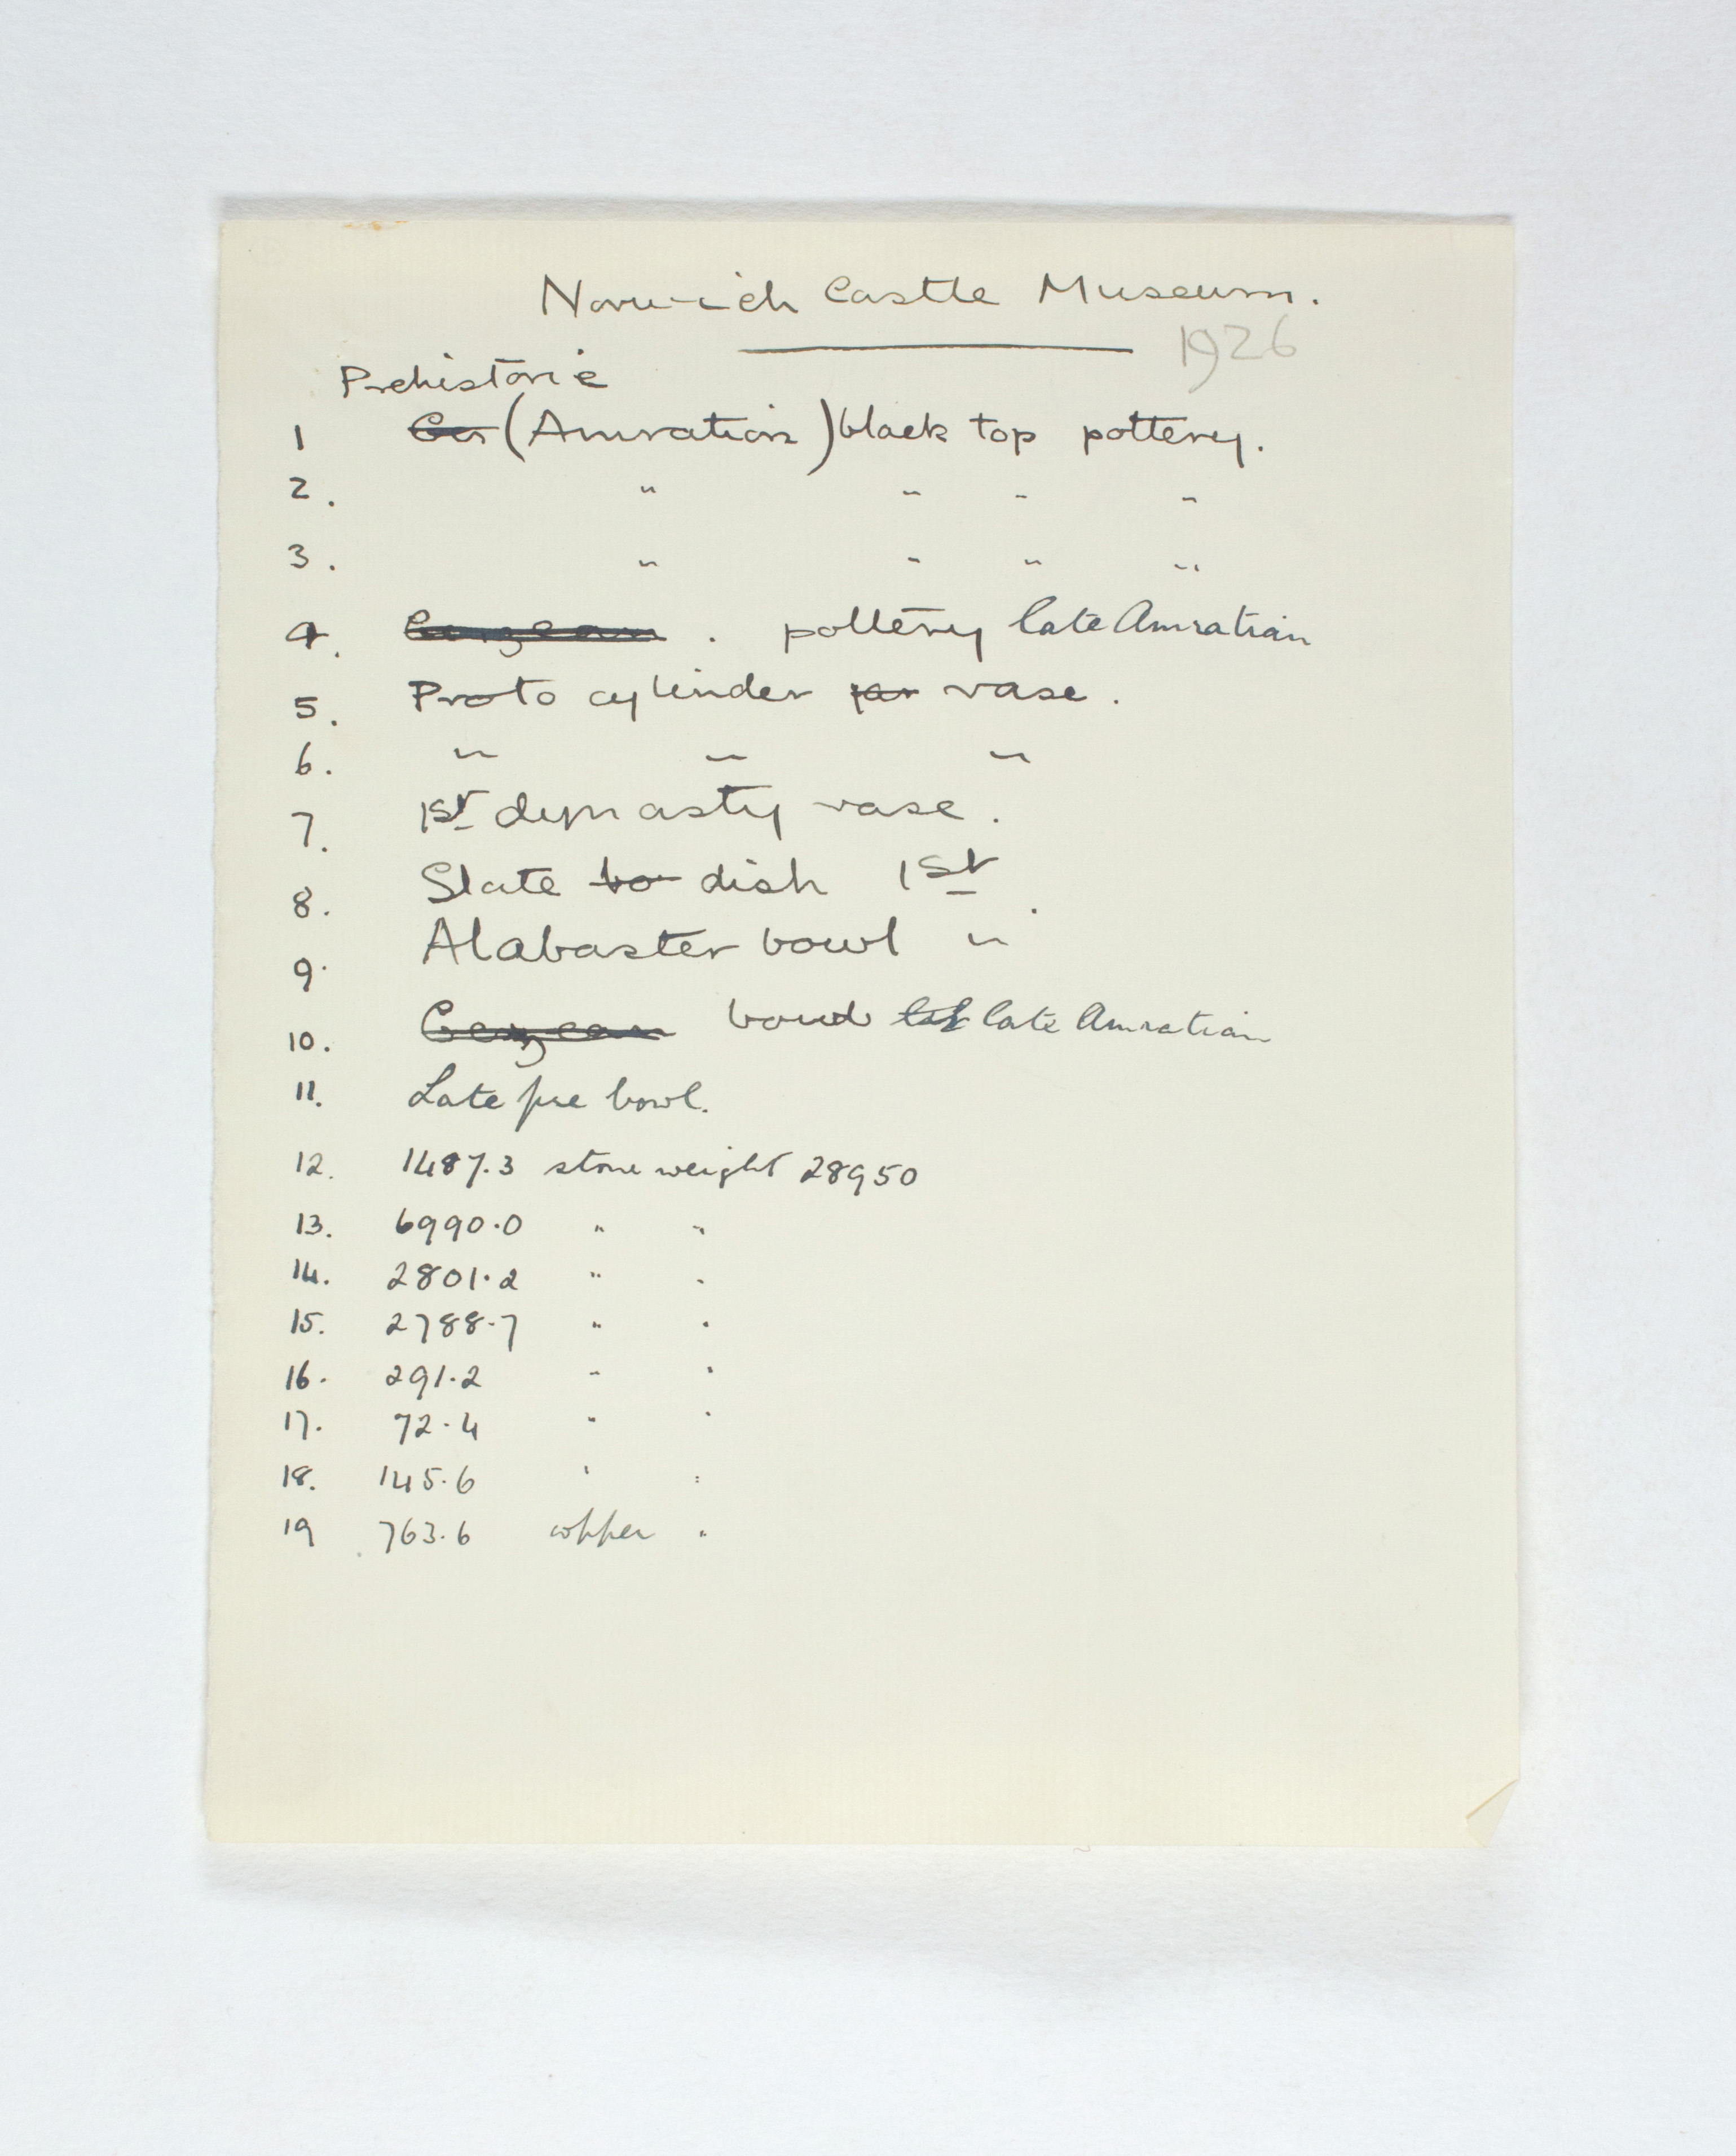 Norwich Castle Museum.
1926
Prehistoric
1 Ger (Amratian) black top pottery.
2. " " " "
3. " " " "
4. Gerzean . pottery late Amratian
5. Proto cylinder jar vase.
6. " " "
7. 1st dynasty vase.
8. Slate bo dish 1st.
9. Alabaster bowl "
10. Gerzean bowl late Amratian
11. Late pre bowl.
12. 1487.3 stone weight 28950
13. 6990.0 " "
14. 2801.2 " "
15. 2788.7 " "
16. 291.2 " "
17. 72.4 " "
18. 145.6 " "
19 763.6 copper "